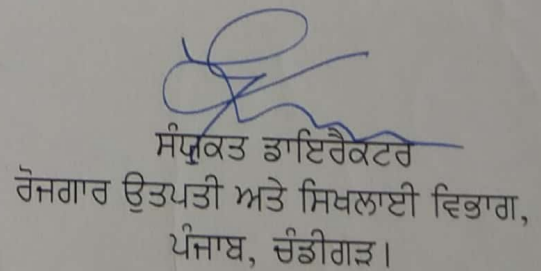 ਸੰਯੁਕਤ ਡਾਇਰੈਕਟਰ
ਰੋਜਗਾਰ ਉਤਪਤੀ ਅਤੇ ਸਿਖਲਾਈ ਵਿਭਾਗ,
ਪੰਜਾਬ, ਚੰਡੀਗੜ।